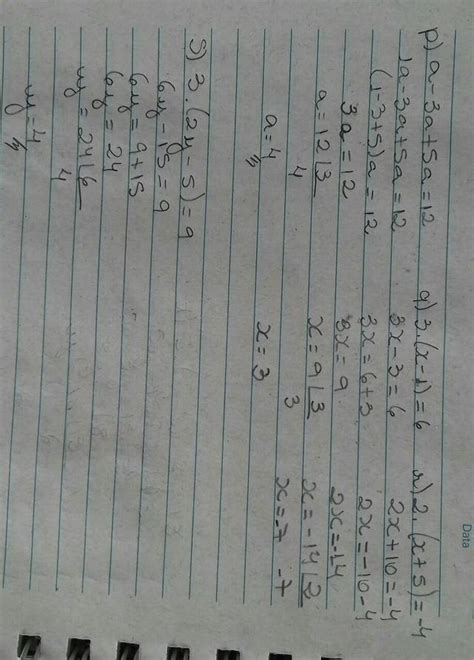 Data
p) a-3a+5a=12
1a-3a+5a=12
(1-3+5)a=12
3a=12
a=12|3
4
a=4
q) 3.(x-1)=6
3x-3=6
3x=6+3
3x=9
x=9|3
3
x=3
r) 2.(x+5)=-4
2x+10=-4
2x=-10-4
2x=-14
x=-14|2
x=-7 -7
S) 3.(2y-5)=9
6y-15=9
6y=9+15
6y=24
y=24|6
4
y=4